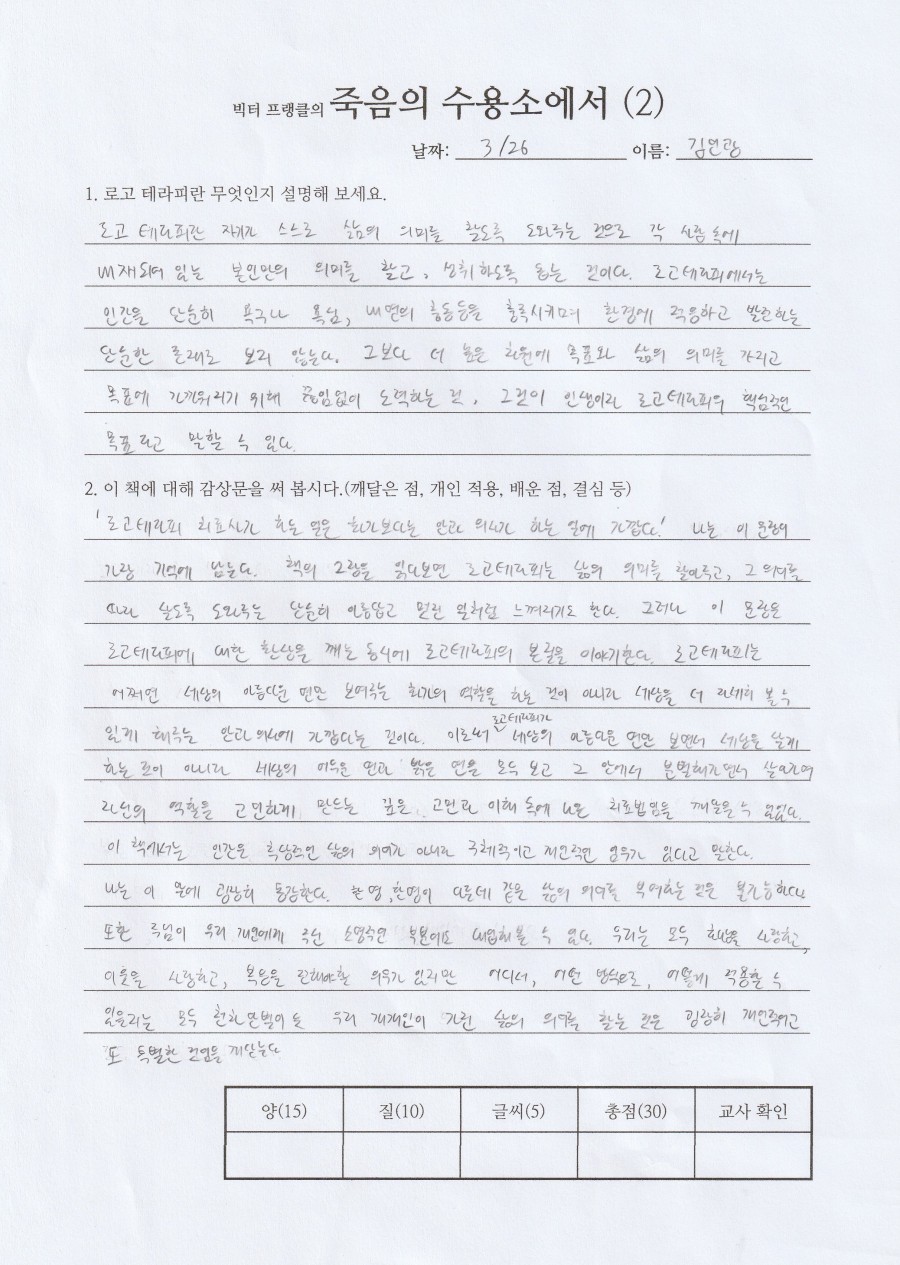 빅터 프랭클의 죽음의 수용소에서 (2)
날짜: 3/26 이름: 김언광
1. 로고 테라피란 무엇인지 설명해 보세요.
로고 테라피란 자기가 스스로 삶의 의미를 찾도록 도와주는 것으로 각 사람 속에
내재되어 있는 본인만의 의미를 찾고, 성취하도록 돕는 것이다. 로고테라피에서는
인간을 단순히 욕구나 욕심, 내면의 충동등을 충족시키며 환경에 적응하고 발전하는
단순한 존재로 보지 않는다. 그보다 더 높은 차원에 목표와 삶의 의미를 가지고
목표에 가까워지기 위해 끊임없이 노력하는 것, 그것이 인생이라 로고테라피의 핵심적인
목표라고 말할 수 있다.
2. 이 책에 대해 감상문을 써 봅시다.(깨달은 점, 개인 적용, 배운 점, 결심 등)
'로고테라피 치료사가 하는 일은 화가보다는 안과 의사가 하는 일에 가깝다.' 나는 이 문장이
가장 기억에 남는다. 책의 2장을 읽다보면 로고테라피는 삶의 의미를 찾아주고, 그 의미를
따라 살도록 도와주는 단순히 아름답고 멋진 일처럼 느껴지기도 한다. 그러나 이 문장은
로고테라피에 대한 환상을 깨는 동시에 로고테라피의 본질을 이야기한다. 로고테라피는
어쩌면 세상의 아름다운 면만 보여주는 화가의 역할을 하는 것이 아니라 세상을 더 자세히 볼 수
있게 해주는 안과 의사에 가깝다는 것이다. 이로써 로고테라피가 세상의 아름다운 면만 보면서 세상을 살게
하는 것이 아니라 세상의 어두운 면과 밝은 면을 모두 보고 그 안에서 분별해가면서 살아가며
자신의 역할을 고민하게 만드는 깊은 고민과 이해 속에 나온 치료법임을 깨달을 수 있었다.
이 책에서는 인간은 추상적인 삶의 의미가 아니라 구체적이고 개인적인 임무가 있다고 말한다.
나는 이 말에 굉장히 동감한다. 한명, 한명이 다른데 같은 삶의 의미를 부여하는 것은 불가능하다.
또한 주님이 우리 개인에게 주신 소명적인 부분에도 대입해볼 수 있다. 우리는 모두 하나님을 사랑하고,
이웃을 사랑하고, 복음을 전해야할 의무가 있지만 어디서, 어떤 방식으로, 어떻게 적용할 수
있을지는 모두 천차만별이듯 우리 개개인이 가진 삶의 의미를 찾는 것은 굉장히 개인적이고
또 특별한 것임을 깨닫는다
양(15) 질(10) 글씨(5) 총점(30) 교사 확인